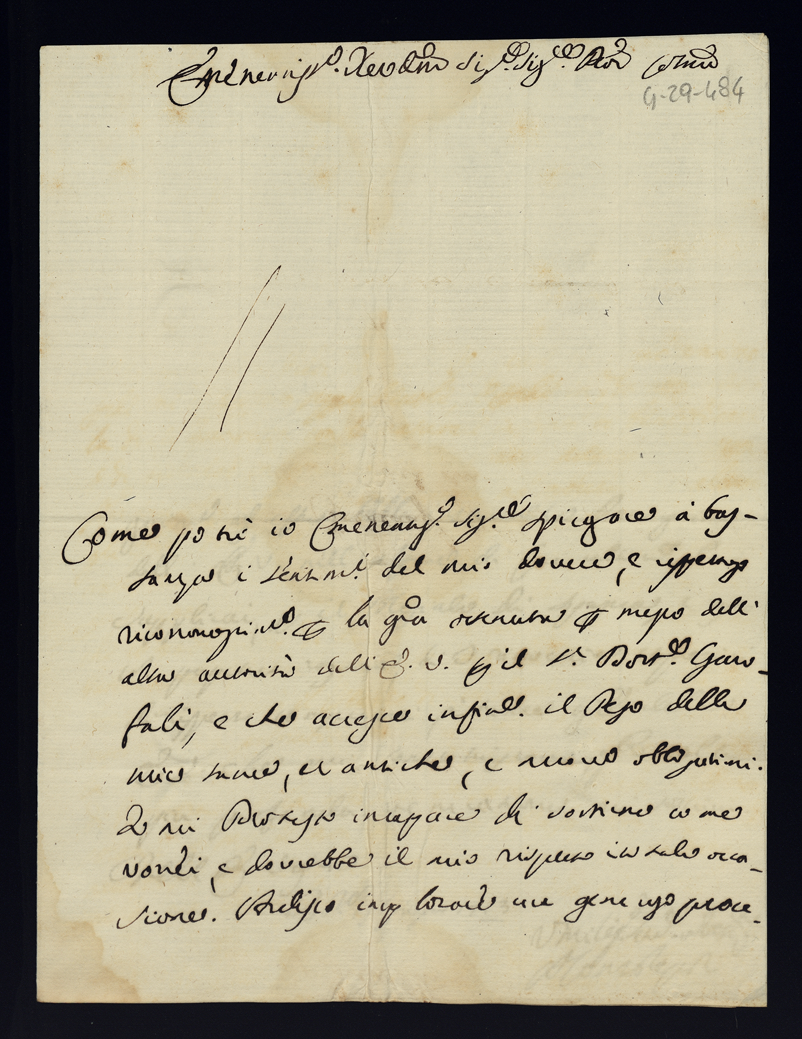 Eminentiss.o Rev.mo Sig.r Sig.r P.ron Col.mo
G-29-484
Come potrò io Eminentiss.o Sig.re spiegare à bas-
tanza i sentim.ti del mio dovere, e rispettoso
riconoscim.to p la gra ottenuta p mezo dell'
alta autorità dell'E. V. p il S.r Dott.re Garo-
fali, e che accresce infin.te il Peso delle
mie tante, et antiche, e nuove obbligationi.
Io mi Protesto incapace di sortirne come
vorrei, e dovrebbe il mio rispetto in tale occa-
sione. Ardisco implorare un generoso